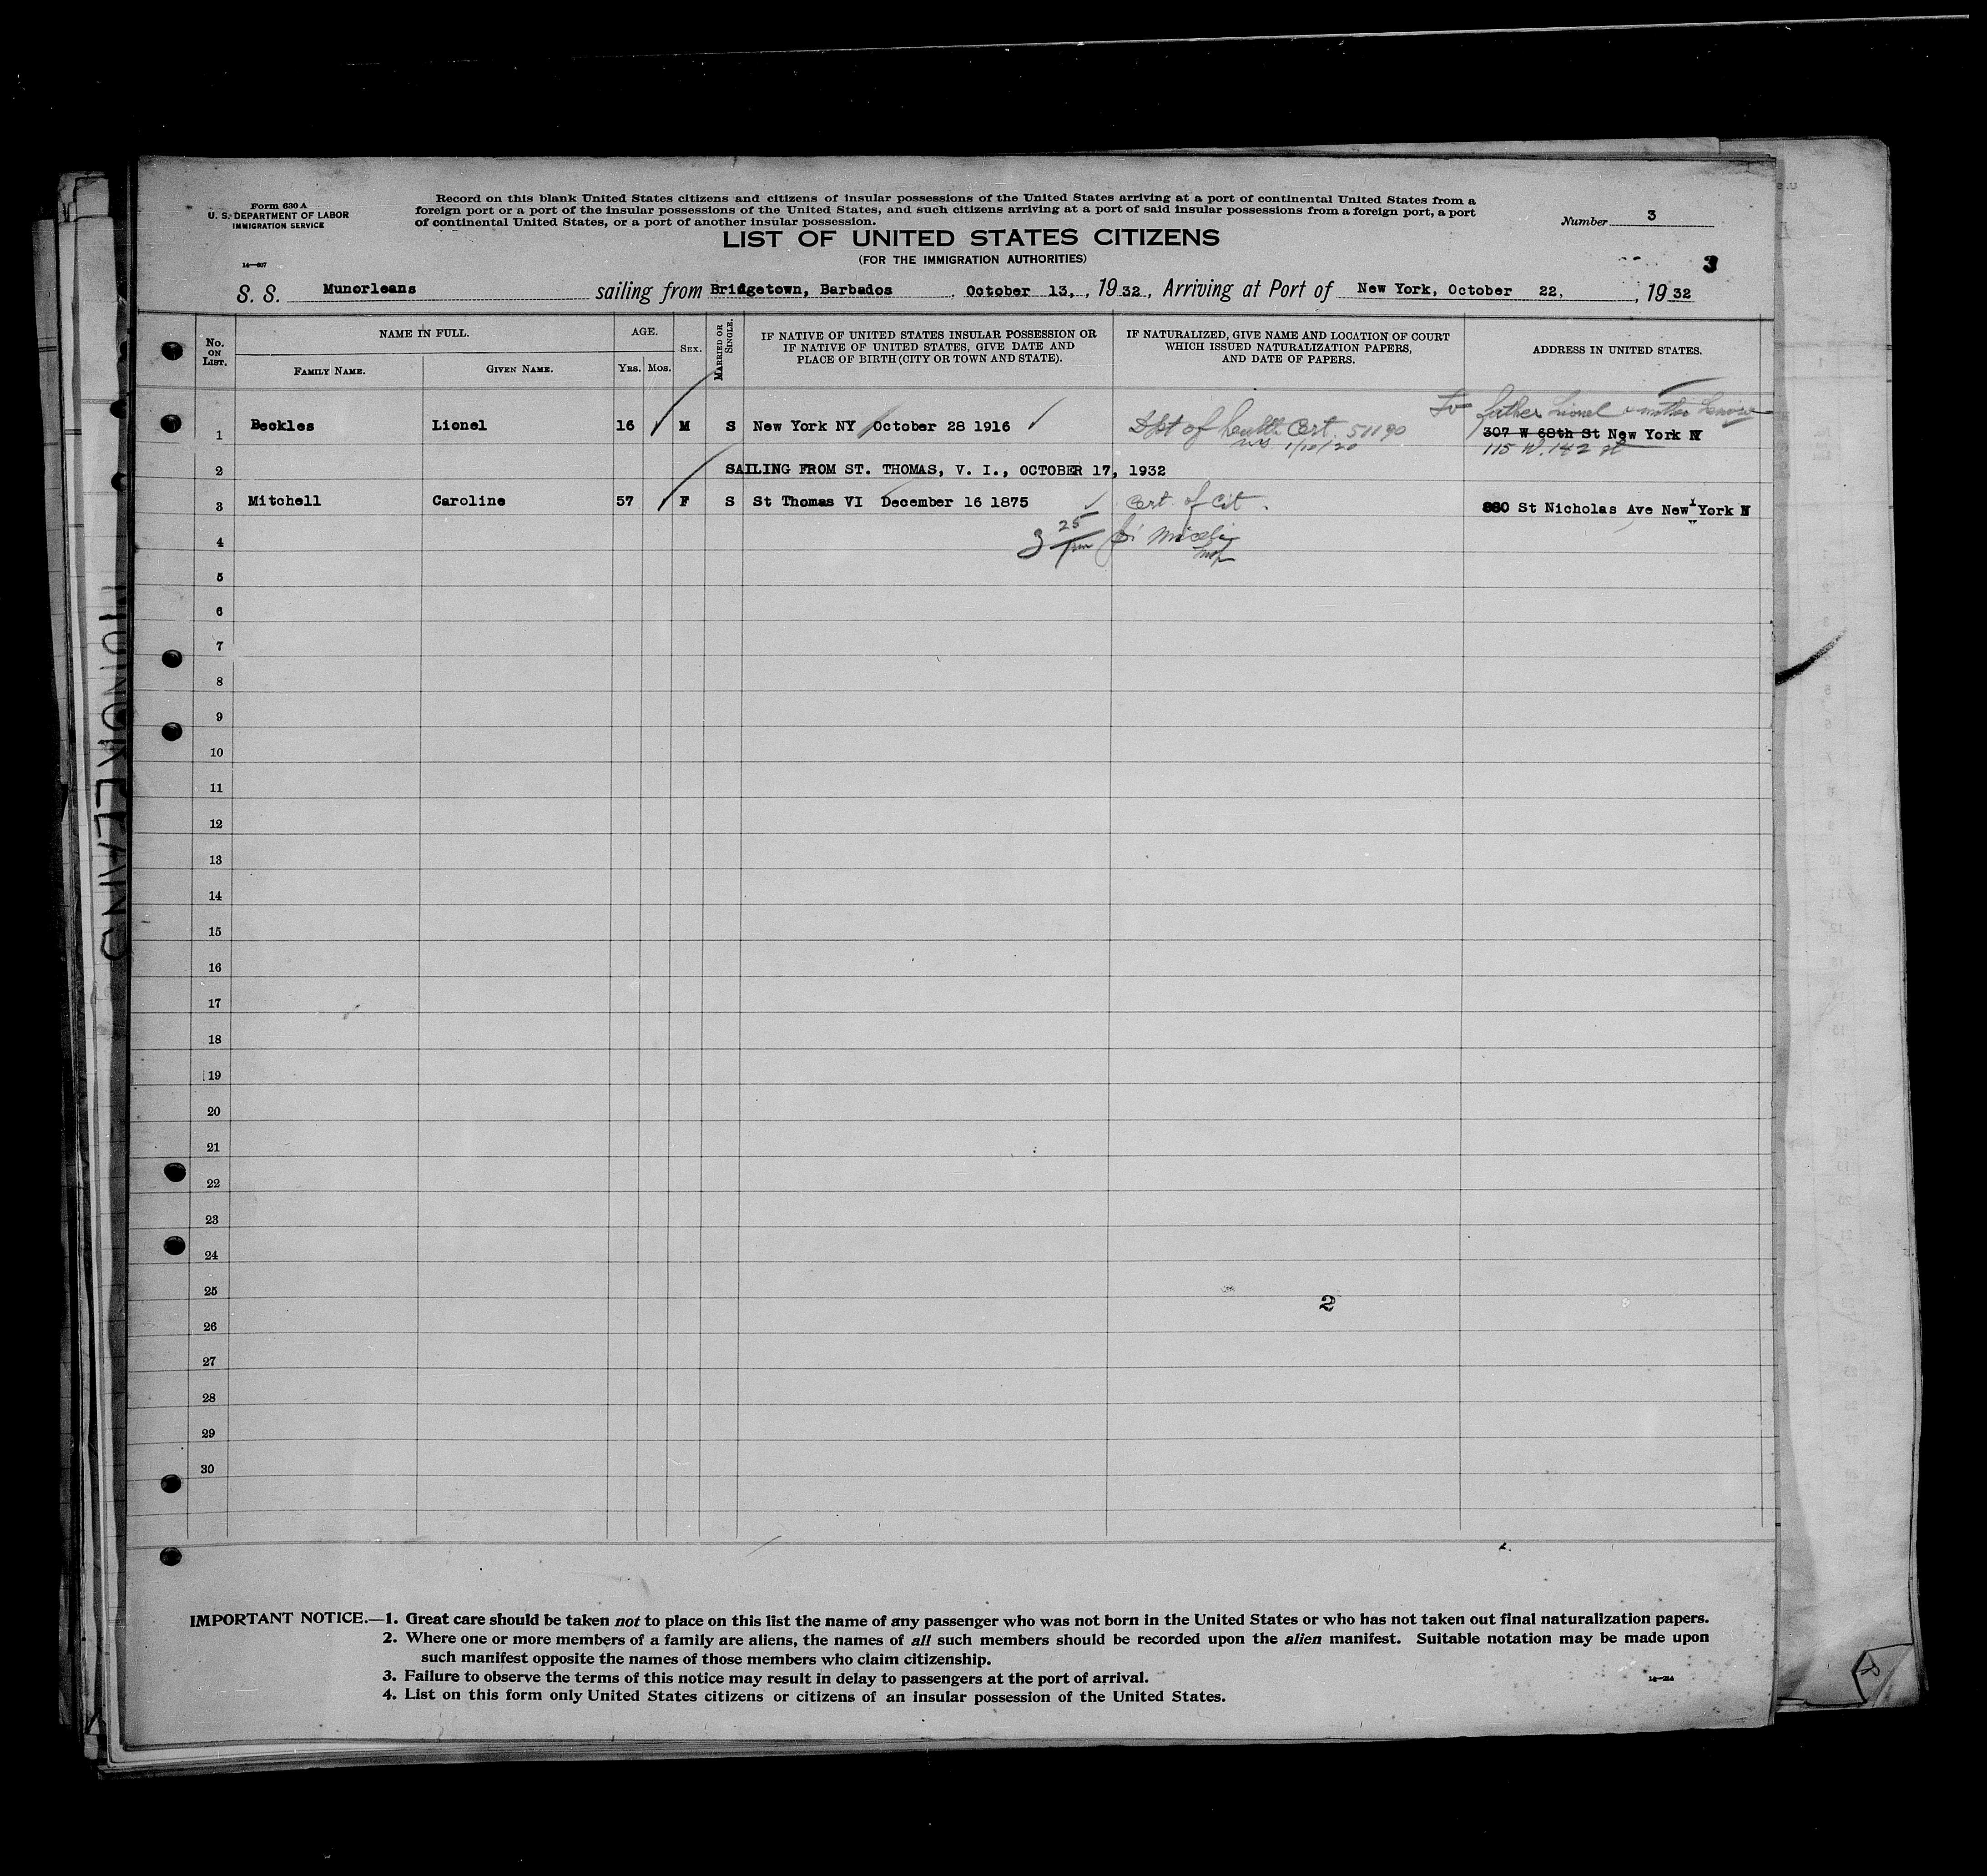 Form 630 A
U. S. DEPARTMENT OF LABOR
IMMIGRATION SERVICE
14—607
Record on this blank United States citizens and citizens of insular possessions of the United States arriving at a port of continental United States from a
foreign port or a port of the insular possessions of the United States, and such citizens arriving at a port of said insular possessions from a foreign port, a port
of continental United States, or a port of another insular possession.
Number 3
LIST OF UNITED STATES CITIZENS
(FOR THE IMMIGRATION AUTHORITIES)
3
S. S. Munorleans sailing from Bridgetown, Barbados, October 13, , 19 32, Arriving at Port of New York, October 22, , 19 32
No. ON LIST.
NAME IN FULL.
FAMILY NAME. GIVEN NAME.
AGE.
YRS. MOS.
SEX.
MARRIED OR SINGLE.
IF NATIVE OF UNITED STATES INSULAR POSSESSION OR
IF NATIVE OF UNITED STATES, GIVE DATE AND
PLACE OF BIRTH (CITY OR TOWN AND STATE).
IF NATURALIZED, GIVE NAME AND LOCATION OF COURT
WHICH ISSUED NATURALIZATION PAPERS,
AND DATE OF PAPERS.
ADDRESS IN UNITED STATES.
To father Lionel & mother
1 Beckles Lionel 16 M S New York NY October 28 1916 Dpt of Health Cert. 51190 307 W 68th St New York NY
1/12/20 115 W. 142 St
2 SAILING FROM ST. THOMAS, V. I., OCTOBER 17, 1932
3 Mitchell Caroline 57 F S St Thomas VI December 16 1875 Cert. of Cit. 880 St Nicholas Ave New York N
4
5
6
7
8
9
10
11
12
13
14
15
16
17
18
19
20
21
22
23
24
25
2
26
27
28
29
30
IMPORTANT NOTICE.—1. Great care should be taken not to place on this list the name of any passenger who was not born in the United States or who has not taken out final naturalization papers.
2. Where one or more members of a family are aliens, the names of all such members should be recorded upon the alien manifest. Suitable notation may be made upon
such manifest opposite the names of those members who claim citizenship.
3. Failure to observe the terms of this notice may result in delay to passengers at the port of arrival.
4. List on this form only United States citizens or citizens of an insular possession of the United States.
14—214
MUNORLEANS